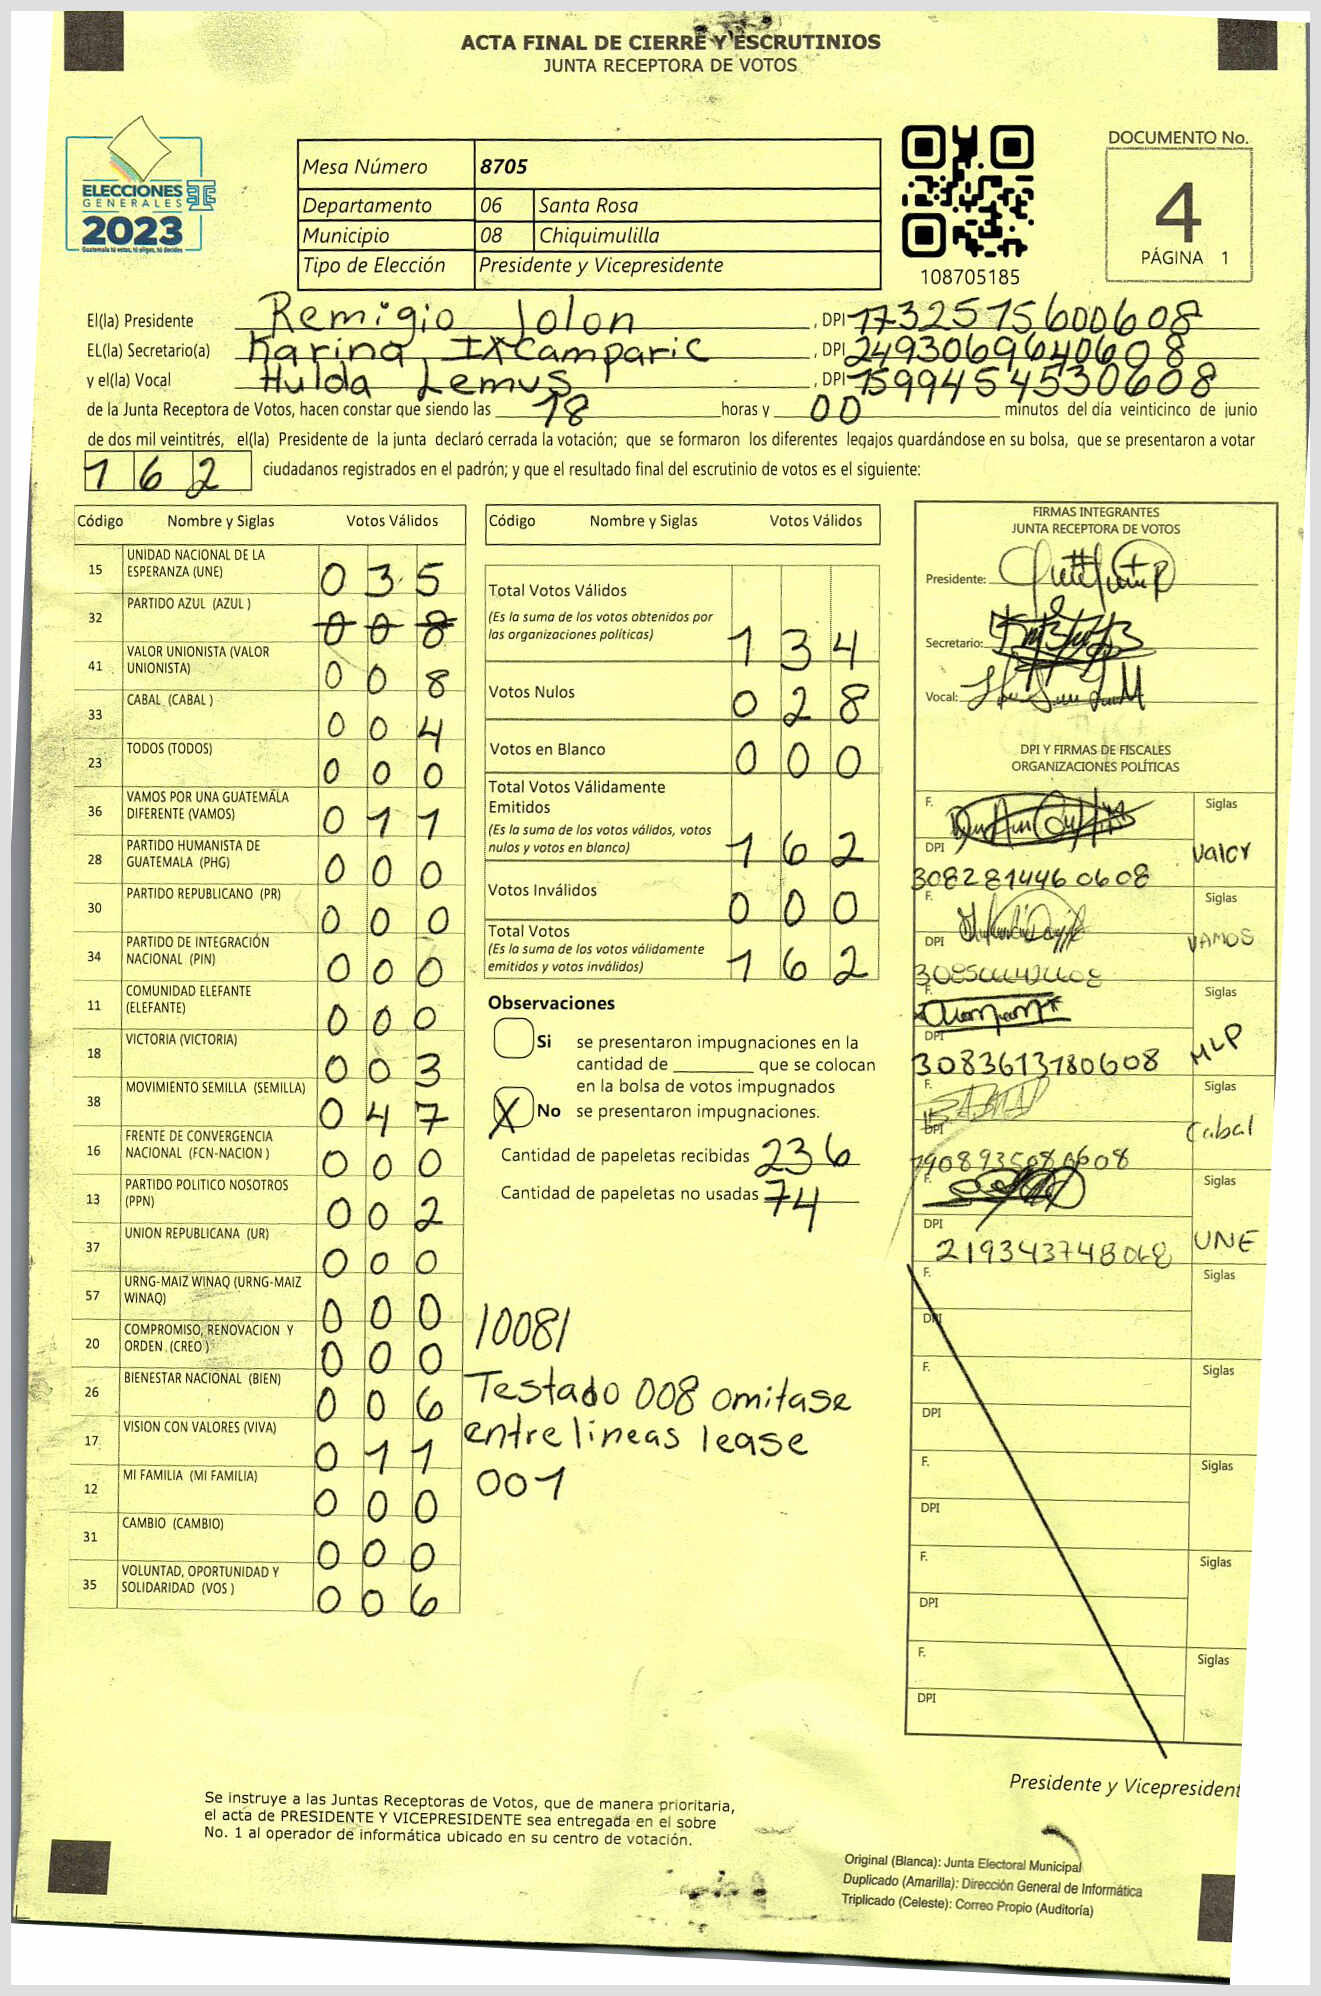 ACTA FINAL DE CIERRE Y ESCRUTINIOS
JUNTA RECEPTORA DE VOTOS
ELECCIONES
GENERALES
2023
Guatemala tú votas, tú eliges, tú decides
Mesa Número 8705
Departamento 06 Santa Rosa
Municipio 08 Chiquimulilla
Tipo de Elección Presidente y Vicepresidente
108705185
DOCUMENTO No.
4
PÁGINA 1
El(la) Presidente Remigio Jolon, DPI 1732575600608
EL(la) Secretario(a) Karina Ixcamparic, DPI 2493069640608
y el(la) Vocal Hulda Lemus, DPI 1599454530608
de la Junta Receptora de Votos, hacen constar que siendo las 18 horas y 00 minutos del día veinticinco de junio
de dos mil veintitrés, el(la) Presidente de la junta declaró cerrada la votación; que se formaron los diferentes legajos guardándose en su bolsa, que se presentaron a votar
162 ciudadanos registrados en el padrón; y que el resultado final del escrutinio de votos es el siguiente:
Código Nombre y Siglas Votos Válidos
15 UNIDAD NACIONAL DE LA ESPERANZA (UNE) 035
32 PARTIDO AZUL (AZUL ) 008
41 VALOR UNIONISTA (VALOR UNIONISTA) 008
33 CABAL (CABAL ) 004
23 TODOS (TODOS) 000
36 VAMOS POR UNA GUATEMALA DIFERENTE (VAMOS) 011
28 PARTIDO HUMANISTA DE GUATEMALA (PHG) 000
30 PARTIDO REPUBLICANO (PR) 000
34 PARTIDO DE INTEGRACIÓN NACIONAL (PIN) 000
11 COMUNIDAD ELEFANTE (ELEFANTE) 000
18 VICTORIA (VICTORIA) 003
38 MOVIMIENTO SEMILLA (SEMILLA) 047
16 FRENTE DE CONVERGENCIA NACIONAL (FCN-NACION ) 000
13 PARTIDO POLITICO NOSOTROS (PPN) 002
37 UNION REPUBLICANA (UR) 000
57 URNG-MAIZ WINAQ (URNG-MAIZ WINAQ) 000
20 COMPROMISO, RENOVACION Y ORDEN (CREO ) 000
26 BIENESTAR NACIONAL (BIEN) 006
17 VISION CON VALORES (VIVA) 011
12 MI FAMILIA (MI FAMILIA) 000
31 CAMBIO (CAMBIO) 000
35 VOLUNTAD, OPORTUNIDAD Y SOLIDARIDAD (VOS ) 006
Código Nombre y Siglas Votos Válidos
Total Votos Válidos
(Es la suma de los votos obtenidos por
las organizaciones políticas) 134
Votos Nulos 028
Votos en Blanco 000
Total Votos Válidamente
Emitidos
(Es la suma de los votos válidos, votos
nulos y votos en blanco) 162
Votos Inválidos 000
Total Votos
(Es la suma de los votos válidamente
emitidos y votos inválidos) 162
Observaciones
Si se presentaron impugnaciones en la
cantidad de ________ que se colocan
en la bolsa de votos impugnados
X No se presentaron impugnaciones.
Cantidad de papeletas recibidas 236
Cantidad de papeletas no usadas 74
10081
Testado 008 omitase
entre lineas lease
001
FIRMAS INTEGRANTES
JUNTA RECEPTORA DE VOTOS
Presidente:
Secretario:
Vocal:
DPI Y FIRMAS DE FISCALES
ORGANIZACIONES POLÍTICAS
F. Siglas
DPI Valor
3082814460608
F. Siglas
DPI VAMOS
F. Siglas
DPI MLP
3083613780608
F. Siglas
DPI Cabal
F.
Siglas
DPI UNE
F. Siglas
DPI
F. Siglas
DPI
F. Siglas
DPI
F. Siglas
DPI
F. Siglas
DPI
Presidente y Vicepresident
Se instruye a las Juntas Receptoras de Votos, que de manera prioritaria,
el acta de PRESIDENTE Y VICEPRESIDENTE sea entregada en el sobre
No. 1 al operador de informática ubicado en su centro de votación.
Original (Blanca): Junta Electoral Municipal
Duplicado (Amarilla): Dirección General de Informática
Triplicado (Celeste): Correo Propio (Auditoría)